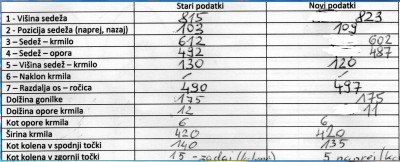 Stari podatki Novi podatki
1 - Višina sedeža 815 823
2 - Pozicija sedeža (naprej, nazaj) 103 109
3 – Sedež – krmilo 612 602
4 – Sedež – opora 492 487
5 – Višina sedež – krmilo 130 120
6 – Naklon krmila / /
7 – Razdalja os – ročica 490 497
Dolžina gonilke 175 175
Dolžina opore krmila 12 11
Kot opore krmila 6 6
Širina krmila 420 420
Kot kolena v spodnji točki 140 135
Kot kolena v zgornji točki 15 - zadaj 5 naprej